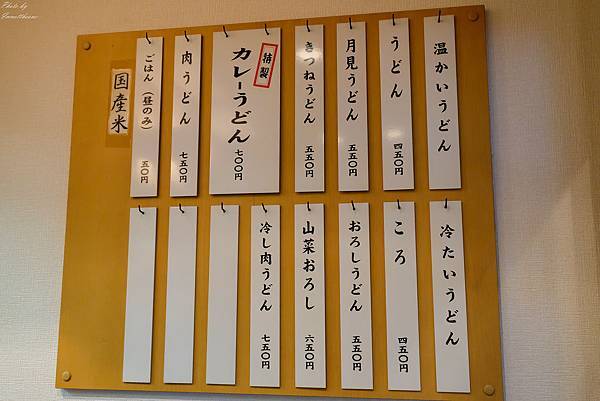 温かいうどん
うどん 四五〇円
月見うどん 五五〇円
きつねうどん 五五〇円
特製
カレーうどん 七〇〇円
肉うどん 七五〇円
ごはん（昼のみ） 五〇円
国産米
冷たいうどん
ころ 四五〇円
おろしうどん 五五〇円
山菜おろし 六五〇円
冷し肉うどん 七五〇円